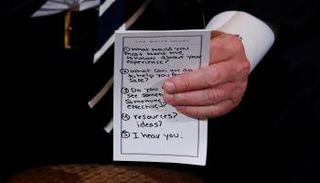 THE WHITE HOUSE
① What would you
most want me
to know about your
experience?
② What can we do
to help you feel
safe?
③ Do you
see some
something
effective?
④ resources?
ideas?
⑤ I hear you.